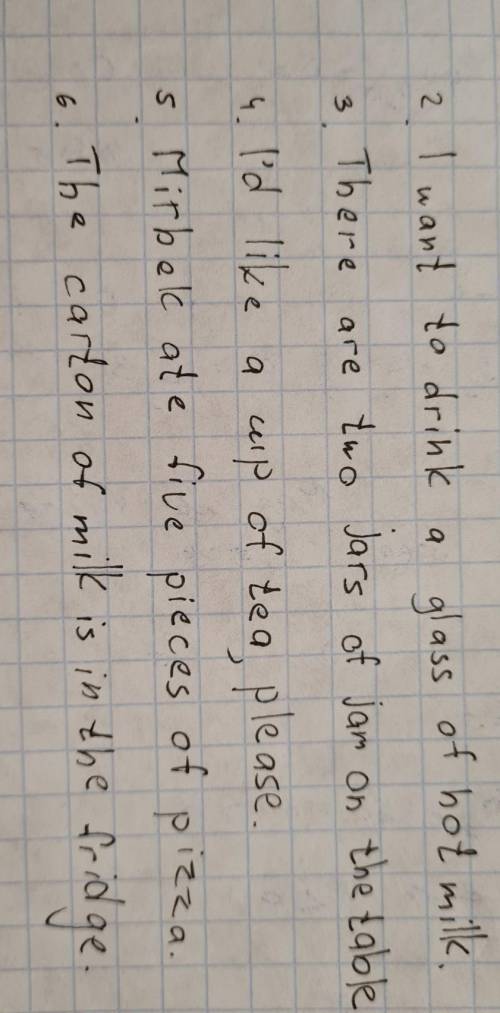 2. I want to drink a glass of hot milk.
3. There are two jars of jam on the table
4. I'd like a cup of tea, please.
5. Mirbek ate five pieces of pizza.
6. The carton of milk is in the fridge.